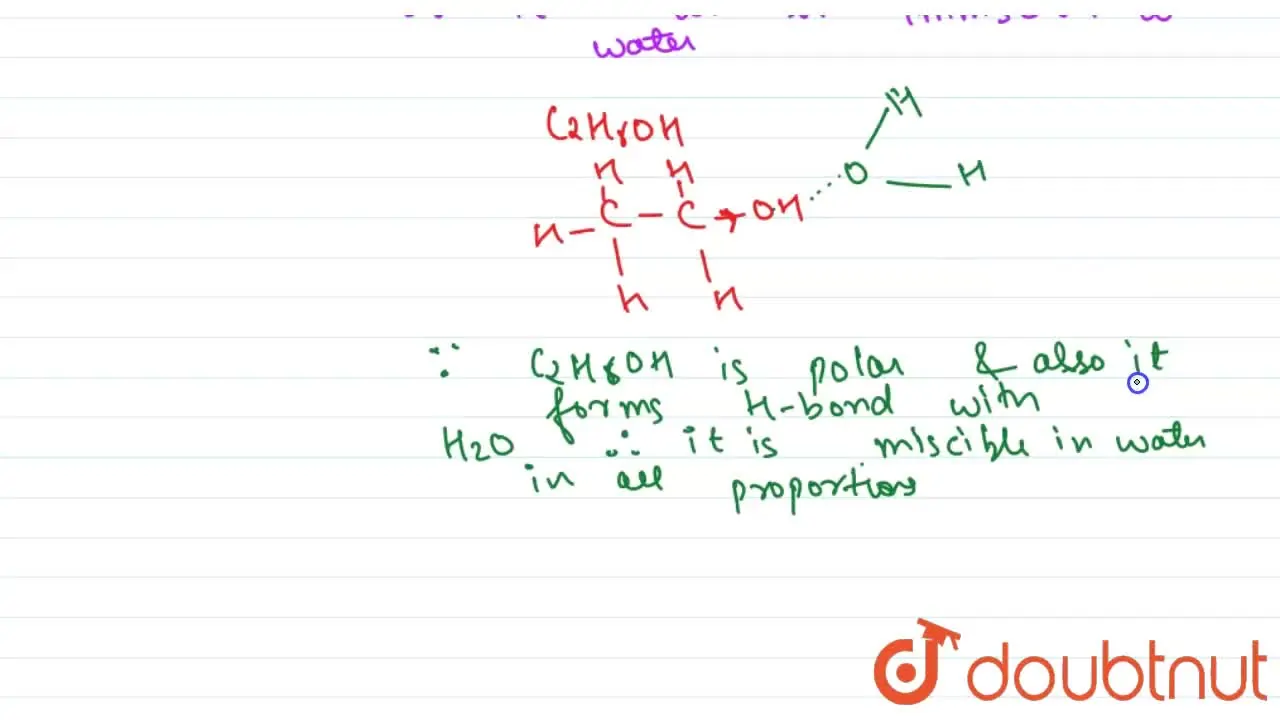 water
C2H5OH
H H
H - C - C - OH ..... O - H
H
H H
∵ C2H5OH is polar & also it
forms H-bond with
H2O ∴ it is miscible in water
in all proportions
doubtnut